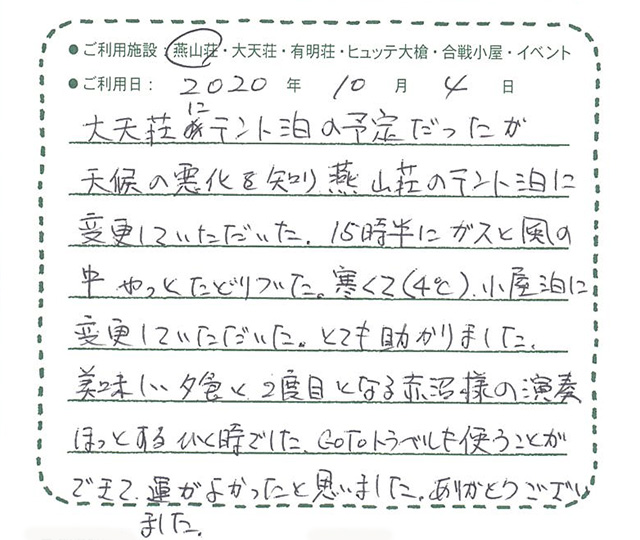 ●ご利用施設:燕山荘・大天荘・有明荘・ヒュッテ大槍・合戦小屋・イベント
●ご利用日: 2020 年 10 月 4 日
大天荘にテント泊の予定だったが
天候の悪化を知り燕山荘のテント泊に
変更していただいた。15時半にガスと風の
中やっとたどりついた。寒くて(4℃)、小屋泊に
変更していただいた。とても助かりました。
美味しい夕食と2度目となる赤沼様の演奏
ほっとするひと時でした。GoToトラベルも使うことが
できて、運がよかったと思いました。ありがとうござい
ました。